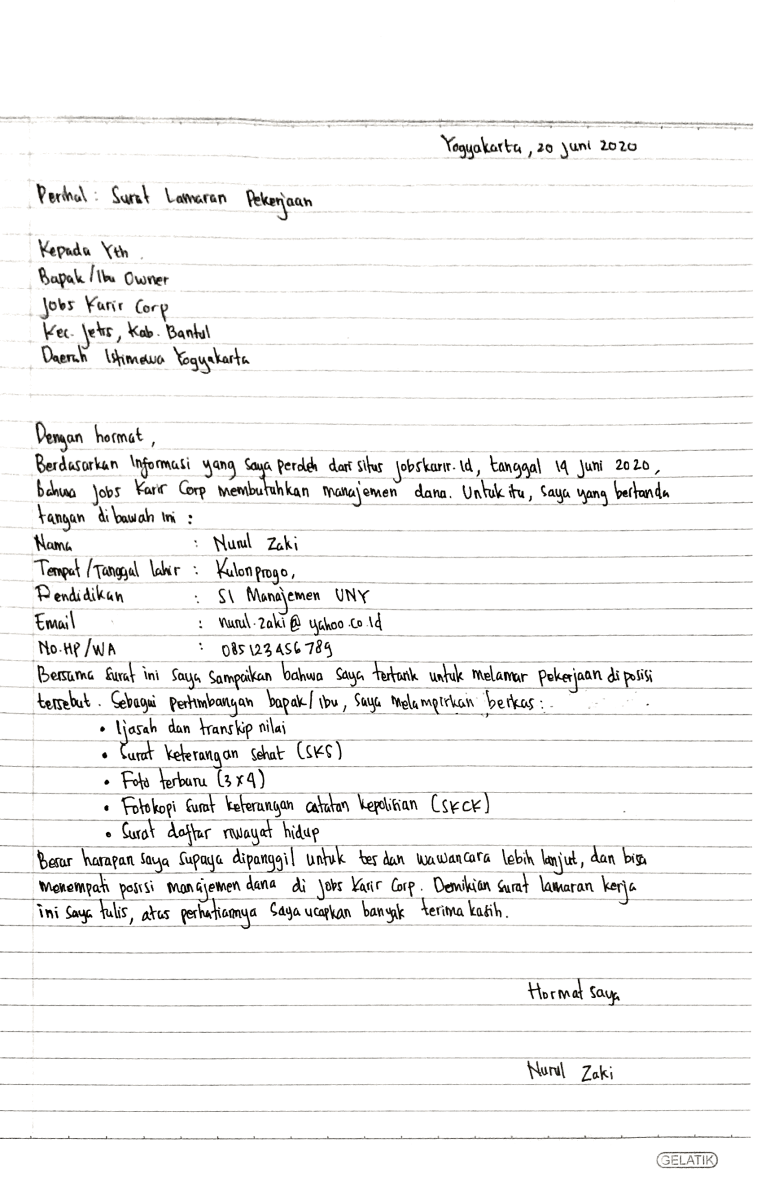 Yogyakarta, 20 Juni 2020
Perihal : Surat Lamaran Pekerjaan
Kepada Yth.
Bapak/Ibu Owner
Jobs Karir Corp
Kec. Jetis, Kab. Bantul
Daerah Istimewa Yogyakarta
Dengan hormat,
Berdasarkan Informasi yang saya peroleh dari situs jobskarir.id, tanggal 19 Juni 2020,
bahwa Jobs Karir Corp membutuhkan manajemen dana. Untuk itu, saya yang bertanda
tangan di bawah ini :
Nama : Nurul Zaki
Tempat/Tanggal lahir : Kulonprogo,
Pendidikan : S1 Manajemen UNY
Email : nurul.zaki@yahoo.co.id
No.HP/WA : 085123456789
Bersama surat ini saya sampaikan bahwa saya tertarik untuk melamar pekerjaan di posisi
tersebut. Sebagai pertimbangan bapak/ibu, saya melampirkan berkas :
• Ijasah dan transkip nilai
• Surat keterangan sehat (SKS)
• Foto terbaru (3x4)
• Fotokopi surat keterangan catatan kepolisian (SKCK)
• Surat daftar riwayat hidup
Besar harapan saya supaya dipanggil untuk tes dan wawancara lebih lanjut, dan bisa
menempati posisi manajemen dana di Jobs Karir Corp. Demikian surat lamaran kerja
ini saya tulis, atas perhatiannya saya ucapkan banyak terima kasih.
Hormat saya
Nurul Zaki
GELATIK